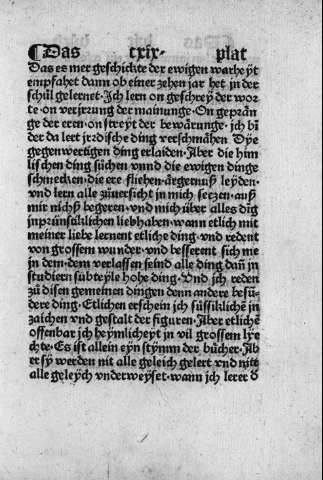 ¶Das cxix· plat
Das es mer geschickte der ewigen warheÿt
empfahet dann ob einer zehen jar het in der
schůl gelernet· Ich lern on geschrey der wor
te· on verjrrung der mainunge· On geprån-
ge der eren· on streyt der bewårunge· ich bi
der da lert jrzdische ding verschmåhen Dye
gegenwertigen ding erlaiden· Aber die him
lischen ding sůchen vnnd die ewigen dinge
schmecken· die ere fliehen· årgernuß leyden·
vnd lern alle zůuersicht in mich setzen· auß
mir nichtz begeren· vnd mich über alles dĩg
inprünstiklichen liebhaben· wann etlich mit
meiner liebe lernent etliche ding· vnd redent
von grossem wunder· vnd besserent sich me
in dem· dem verlassen seind alle ding· dañ in
studiern subteyle hohe ding· Vnd ich reden
zů disen gemeinen dingen denn andere besũ
dere ding· Etlichen erschein ich süssiklichē in
zaichen vnd gestalt der figuren· Aber etlichē
offenbar ich heymlicheyt in vil grossem lye
chte· Es ist allein eyn stymm der bücher· Ab
er sy werden nit alle geleich gelert vnd nitt
alle geleych vnderweyset· wann ich lerer d